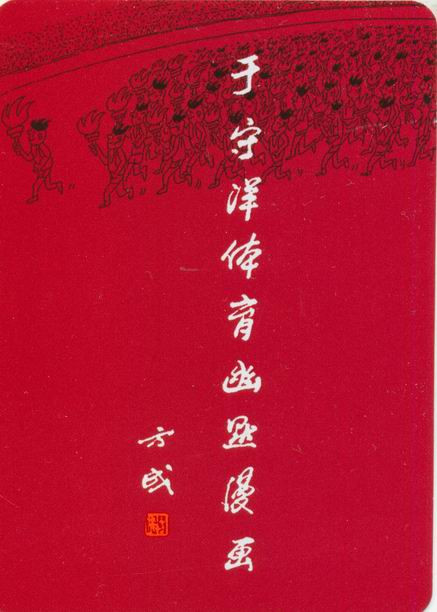 于守洋体育幽默漫画
方成